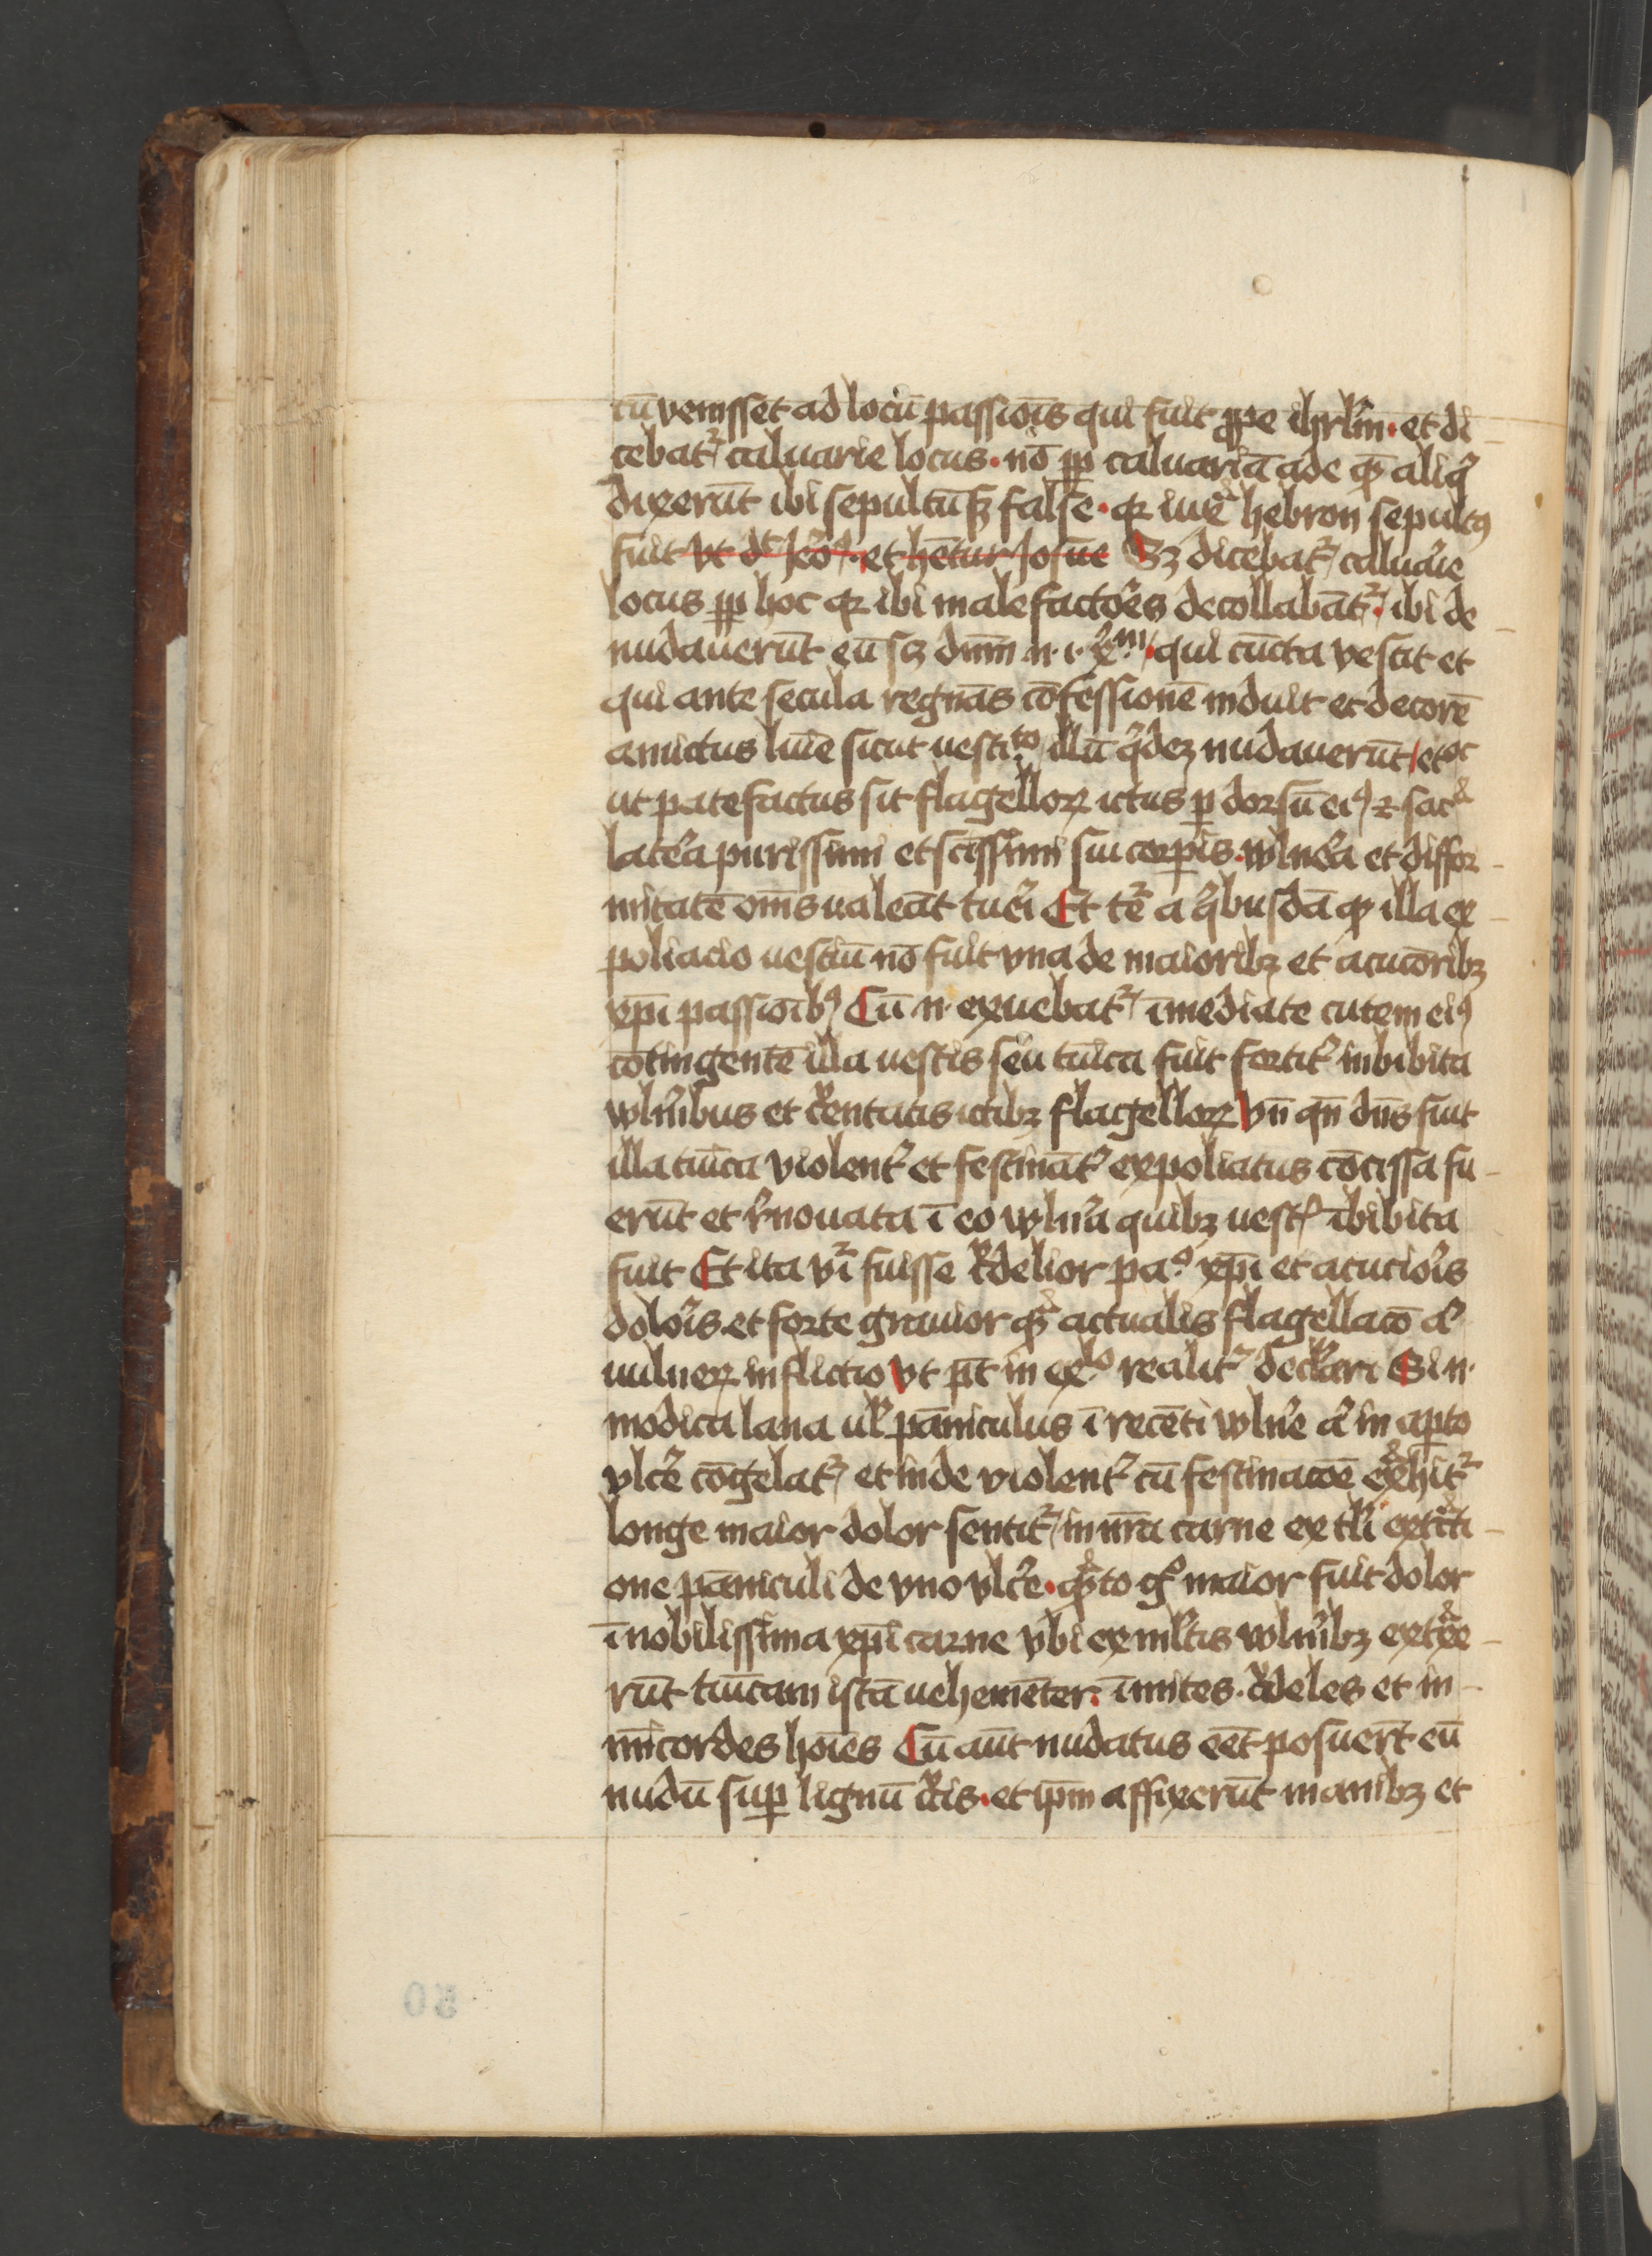 cū venisset ad locū passiōis qui fuit ꝓpe ihrlm̄ · et di-
cebatʳ caluarie locus · nō ꝓp caluariā ade qꝫ aliqⁱ
dixerūt ibi sepultū sꝫ false · qꝛ iuxᵃ hebron sepultꝰ
fuit vt dt Jeōꝰ · et hētur Josue Sꝫ dicebatʳ caluaͥe
locus ꝓp hoc qꝛ ibi malefactoͤes decollabātʳ · ibi de-
nudauerūt eū sꝫ dnm̄ n · i · xᵐ · qui cūcta vestit et
qui ante secula regnās cōfessionē induit et decorē
amictus lūīe sicut uestiᵗᵒ illū qⁱdeꝫ nudauerūt et
ut patefactus sit flagelloꝝ ictus ꝑ dorsū eiꝰ ⁊
lateͬa purissimi et scissimi sui corpis · vulneͬa et diffor-
mitatē om̄s ualeāt tueͬi Et tēʳ a qⁱbusdā qꝫ illa ex-
poliacio uestiū nō fuit vna de maioribꝫ et acucōribꝫ
xp̄i passiōibꝰ Cū n · exuebatʳ īmediate cutem eiꝰ
cōtingentē illa uestis seu tūica fuit fortitͬ inbibita
vlnͥibus et cͬentatis ictibꝫ flagelloꝝ Vn̄ qn̄ dn̄s fuit
illa tūica violentͬ et festinātͬ expoliatus cōcissa fu-
erūt et rͤnouata ī eo vlnͬa quibꝫ uestꝭ ībibita
fuit Et ita vīʳ fuisse cͬdelior paᵒ xp̄i et acucioͬis
doloͬis et forte grauior qᵃꝫ actualis flagellacō aͨ
uulneꝝ inflictio Vt pt̄ in exˡᵒ realitͬ declͣari Si n ·
modica lana ulͬ pāniculus ī recēti vlnͬe aͨ in aꝑto
vlcͬe cōgelatʳ et inde violentͬ cū festinacōe exᵃhitʳ
longe maior dolor sentitʳ in nrā carne ex tlͥ extͣcti-
one pāniculi de vno vlcͬe · qᵃꝫto gͦ maior fuit dolor
ī nobilissima xp̄i carne vbi ex mlͭis vlnͥibꝫ extᵃxe-
rūt tūicam istā uehemēter · īmites · cͬdeles et in-
mīcordes hoīes Cū aūt nudatus eēt posuert̄ eū
nudū suꝑ lignū cͬcis · et ip̄m affixerūt manibꝫ et
50